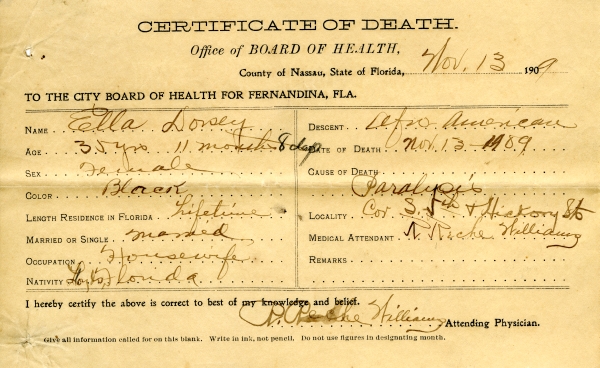 CERTIFICATE OF DEATH.
Office of BOARD OF HEALTH,
County of Nassau, State of Florida, Nov. 13 1909
TO THE CITY BOARD OF HEALTH FOR FERNANDINA, FLA.
NAME Ella Dorsey
AGE 35 yrs 11 months 8 days
SEX Female
COLOR Black
LENGTH RESIDENCE IN FLORIDA Lifetime
MARRIED OR SINGLE Married
OCCUPATION Housewife
NATIVITY Florida
DESCENT Afro American
DATE OF DEATH Nov. 13 - 1909
CAUSE OF DEATH
Paralysis
LOCALITY Cor S. 5th & Hickory Sts
MEDICAL ATTENDANT Williams
REMARKS
I hereby certify the above is correct to best of my knowledge and belief.
Williams Attending Physician.
Give all information called for on this blank. Write in ink, not pencil. Do not use figures in designating month.